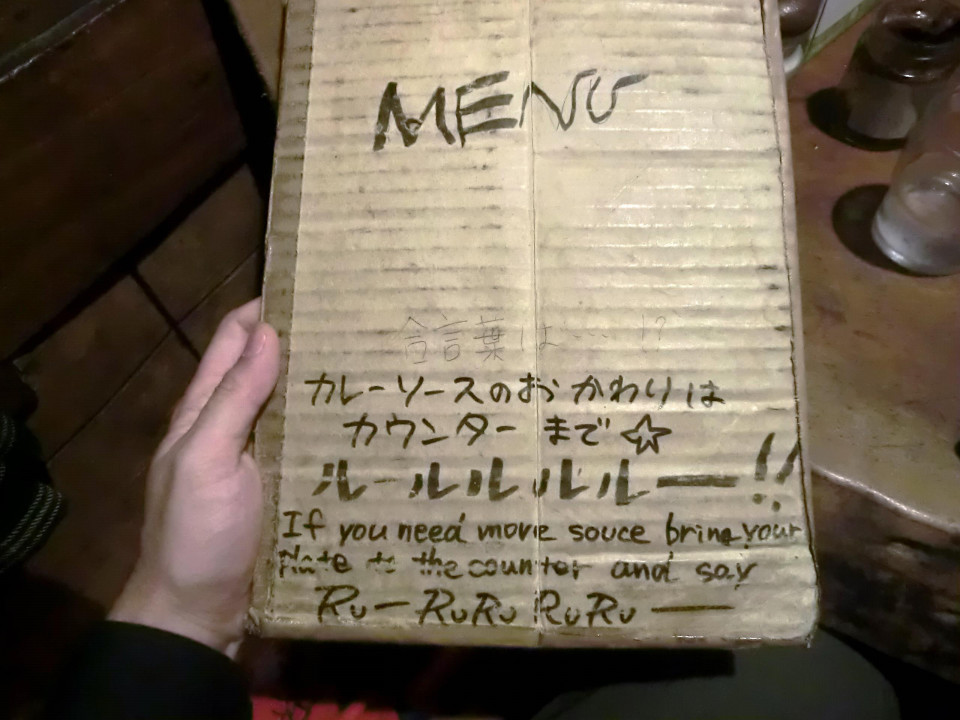 MENU
合言葉は…!?
カレーソースのおかわりは
カウンターまで☆
ルールルルルー!!
If you need more souce bring your
Plate to the counter and say
Ru-RuRu RuRu ー